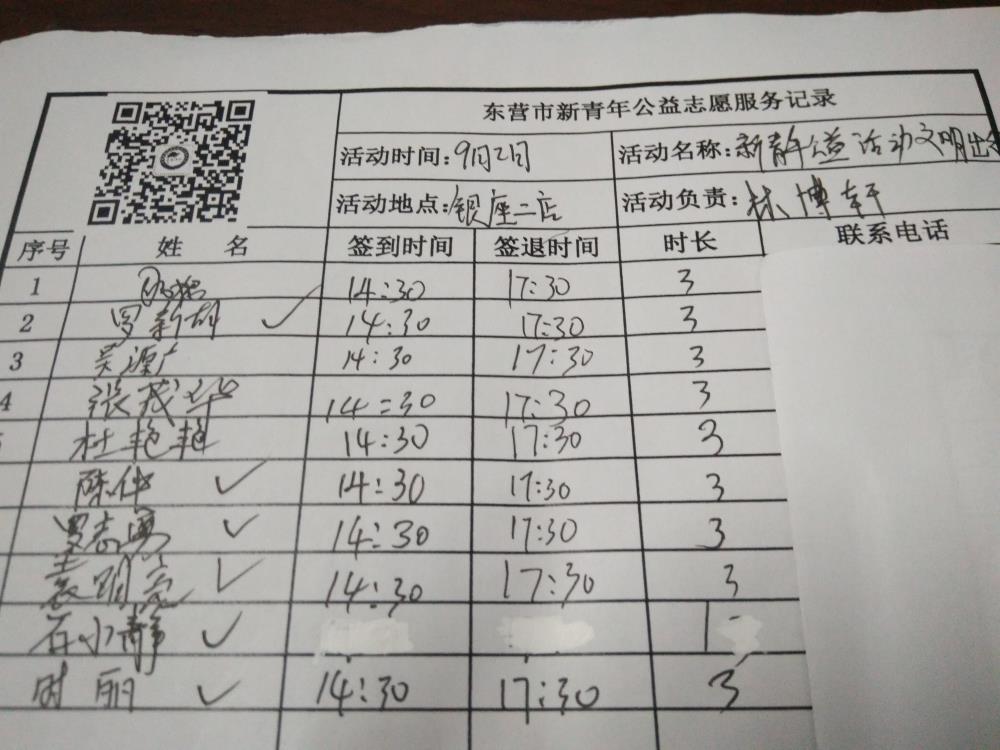 东营市新青年公益志愿服务记录
活动时间:9月2日 活动名称:新青年公益活动文明出
活动地点:银座二店 活动负责:林博轩
序号 姓 名 签到时间 签退时间 时长 联系电话
1 14:30 17:30 3
2 罗新胡 ✓ 14:30 17:30 3
3 吴源广 14:30 17:30 3
4 张茂华 14:30 17:30 3
杜艳艳 14:30 17:30 3
陈仲 ✓ 14:30 17:30 3
罗志勇 ✓ 14:30 17:30 3
袁明 ✓ 14:30 17:30 3
石小静 ✓
时丽 ✓ 14:30 17:30 3